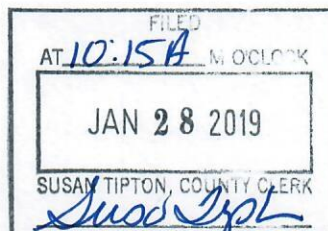 FILED
AT 10:15A M O'CLOCK
JAN 28 2019
SUSAN TIPTON, COUNTY CLERK